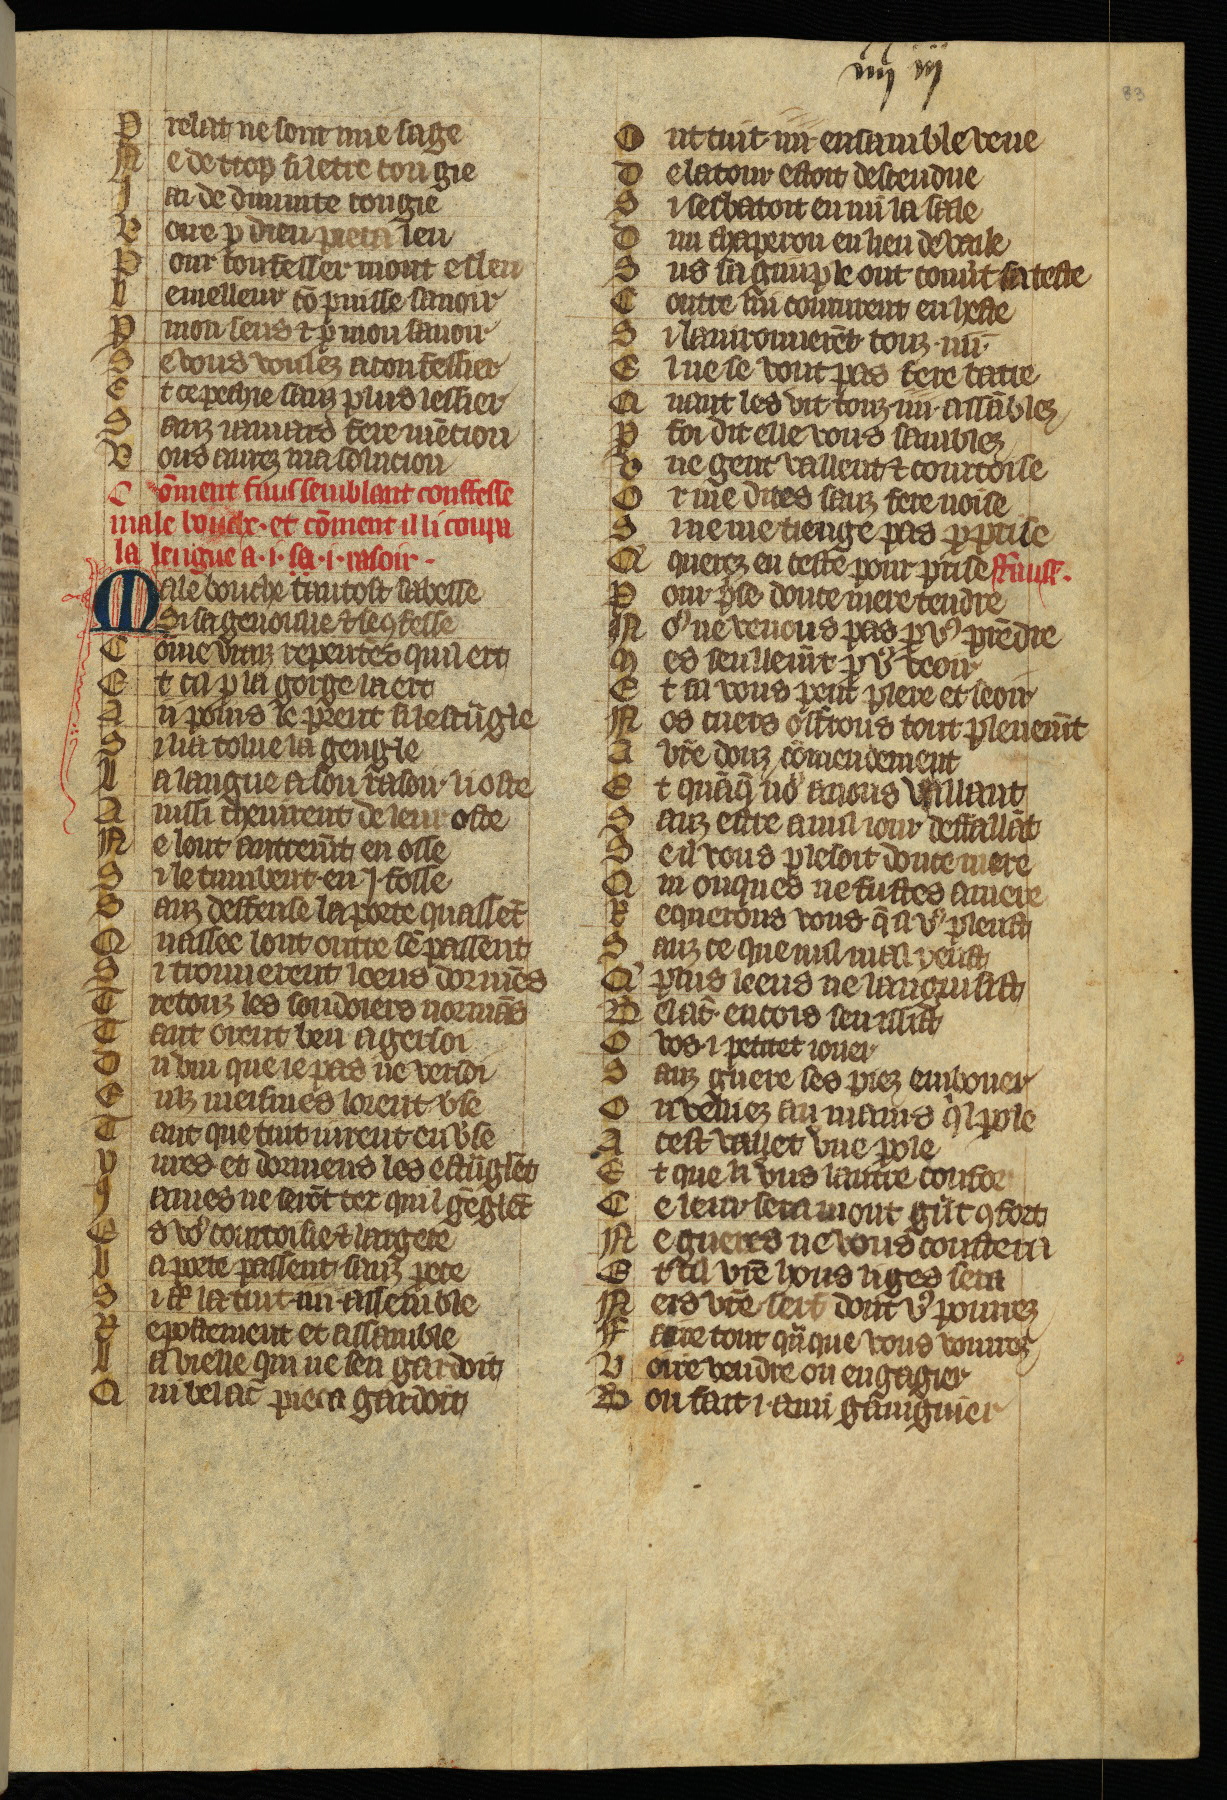 iiij iij
83
P relat ne sont mie sage
N e de trop fu letre con gie
J ai de diuinite congie
V oire p dieu pieca leu
P our confesser mont esleu
L e meilleur cō puisse sauoir
P mon sens ⁊ p mon sauoir
S e vous voulez a confesser
E t ce pechie sanz plus lessier
S anz iamais fere mēcion
V ous aurez ma solucion
C ōment faus semblant confesse
male bouche · et cōment il li coupa
la lengue a · i · sa · i · rasoir ·
M ale bouche tantost sabesse
Si sagenoille ⁊ se ꝯfesse
C ōme vraiz repentēs quil ert
E t cil p la gorge la ert
A ii poins le prent si lestrāgle
S i li a tolue la gengle
L a langue a son rasoir li oste
A inssi cheuirent de leur oste
N e lont autremt en osse
S i le tumbent en j fosse
S anz deffense la porte quassēt
Q uassee lont outre sē passent
S i trouuerent leens dormēs
T restouz les soudoiers normās
T ant orent beu a gersoi
D u vin que ie pas ne versoi
E ulz meismes lorent vse
T ant que tuit iurent en vse
Y ures et dormens les estrāglēt
J ames ne serōt tex quil gēglēt
E s vꝰ courtoisie ⁊ largece
L a porte passent sanz pece
S i st la tuit iiii assemble
R epostement et assamble
L a vielle qui ne sen gardoit
Q ui bel ac pieca gardoit
O nt tuit iiii ensamble veue
D e la tour estoit descendue
S i sesbatoit en mi la sale
D un chaperon en lieu de vaile
S us sa guimple ont couūt sa teste
C ontre lui coururent en heste
S i lauironnerēt touz iiii
E l ne se vout pas fere batre
Q uant les vit touz iiii assāblez
P foi dit elle vous samblez
V ne gent vallent ⁊ courtoise
O r me dites sanz fere noise
S i ne me tienge pas p prise
Q querez en ceste pour prise ffauss ·
P our prise douce mere tendre
N oꝰ ne venons pas p vꝰ prēdre
M es seullemt p vꝰ veoir
E t sil vous peut plere et seoir
N os cuers offrons tout plenemt
A vr̄e douz cōmendement
E t quāq̄ noꝰ auons vaillant
S anz estre a nul iour deffallāt
S e il vous plesoit douce mere
Q ui onques ne fustes amere
R equerons vous q̄ il vꝰ pleust
S anz ce que nul mal y eust
Q plus leens ne languisist
B elac encois sen issist
O vos i petitet iouer
S anz guere ses piez enbouer
O u vellez au mains q̄l pole
A cest vallet vne pole
E t que li vns lautre confor
C e leur sera mont grāt ꝯfort
N e gueres ne vous coustera
E t cil vr̄e hons liges sera
N ers vr̄e serf dont vꝰ pourrez
F aire tout q̄nque vous vourrez
V oire vendre ou engagier
B on fait i ami gāaignier